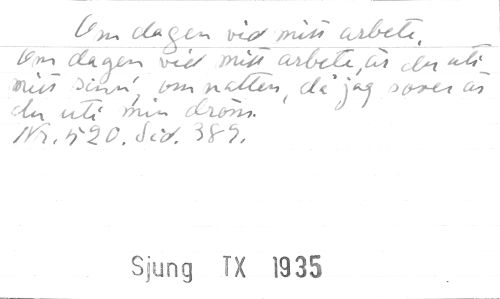 Om dagen vid mitt arbete.
Om dagen vid mitt arbete, är du uti
mitt sinn', om natten, då jag sover är
du uti min dröm.
Nr. 520. Sid. 389.
Sjung TX 1935